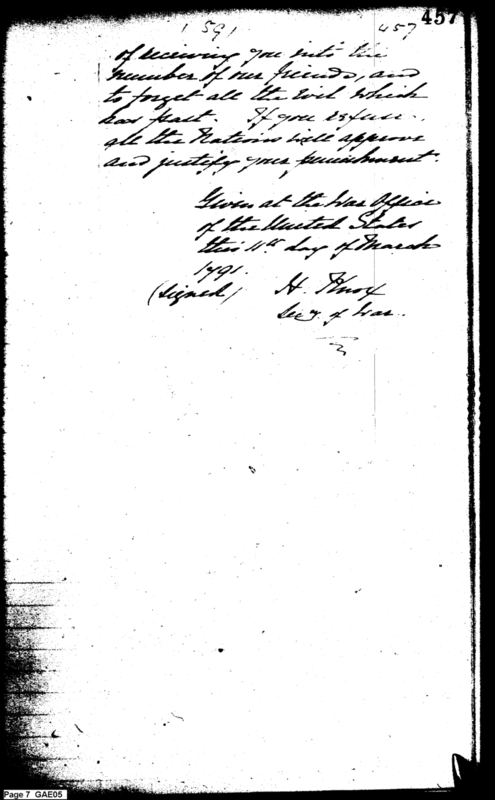 457
1 591 457
of receiving you into the
number of our friends, and
to forget all the evil which
has past. If you refuse,
all the Nations will approve
and justify your punishment.
Given at the War Office
of the United States
this 11th day of March
1791.
(signed) H. Knox
Secy. of War.
Page 7 GAE05